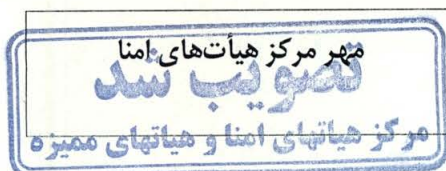 مهر مرکز هیأت‌های امنا
تصویب شد
مرکز هیاتهای امنا و هیاتهای ممیزه